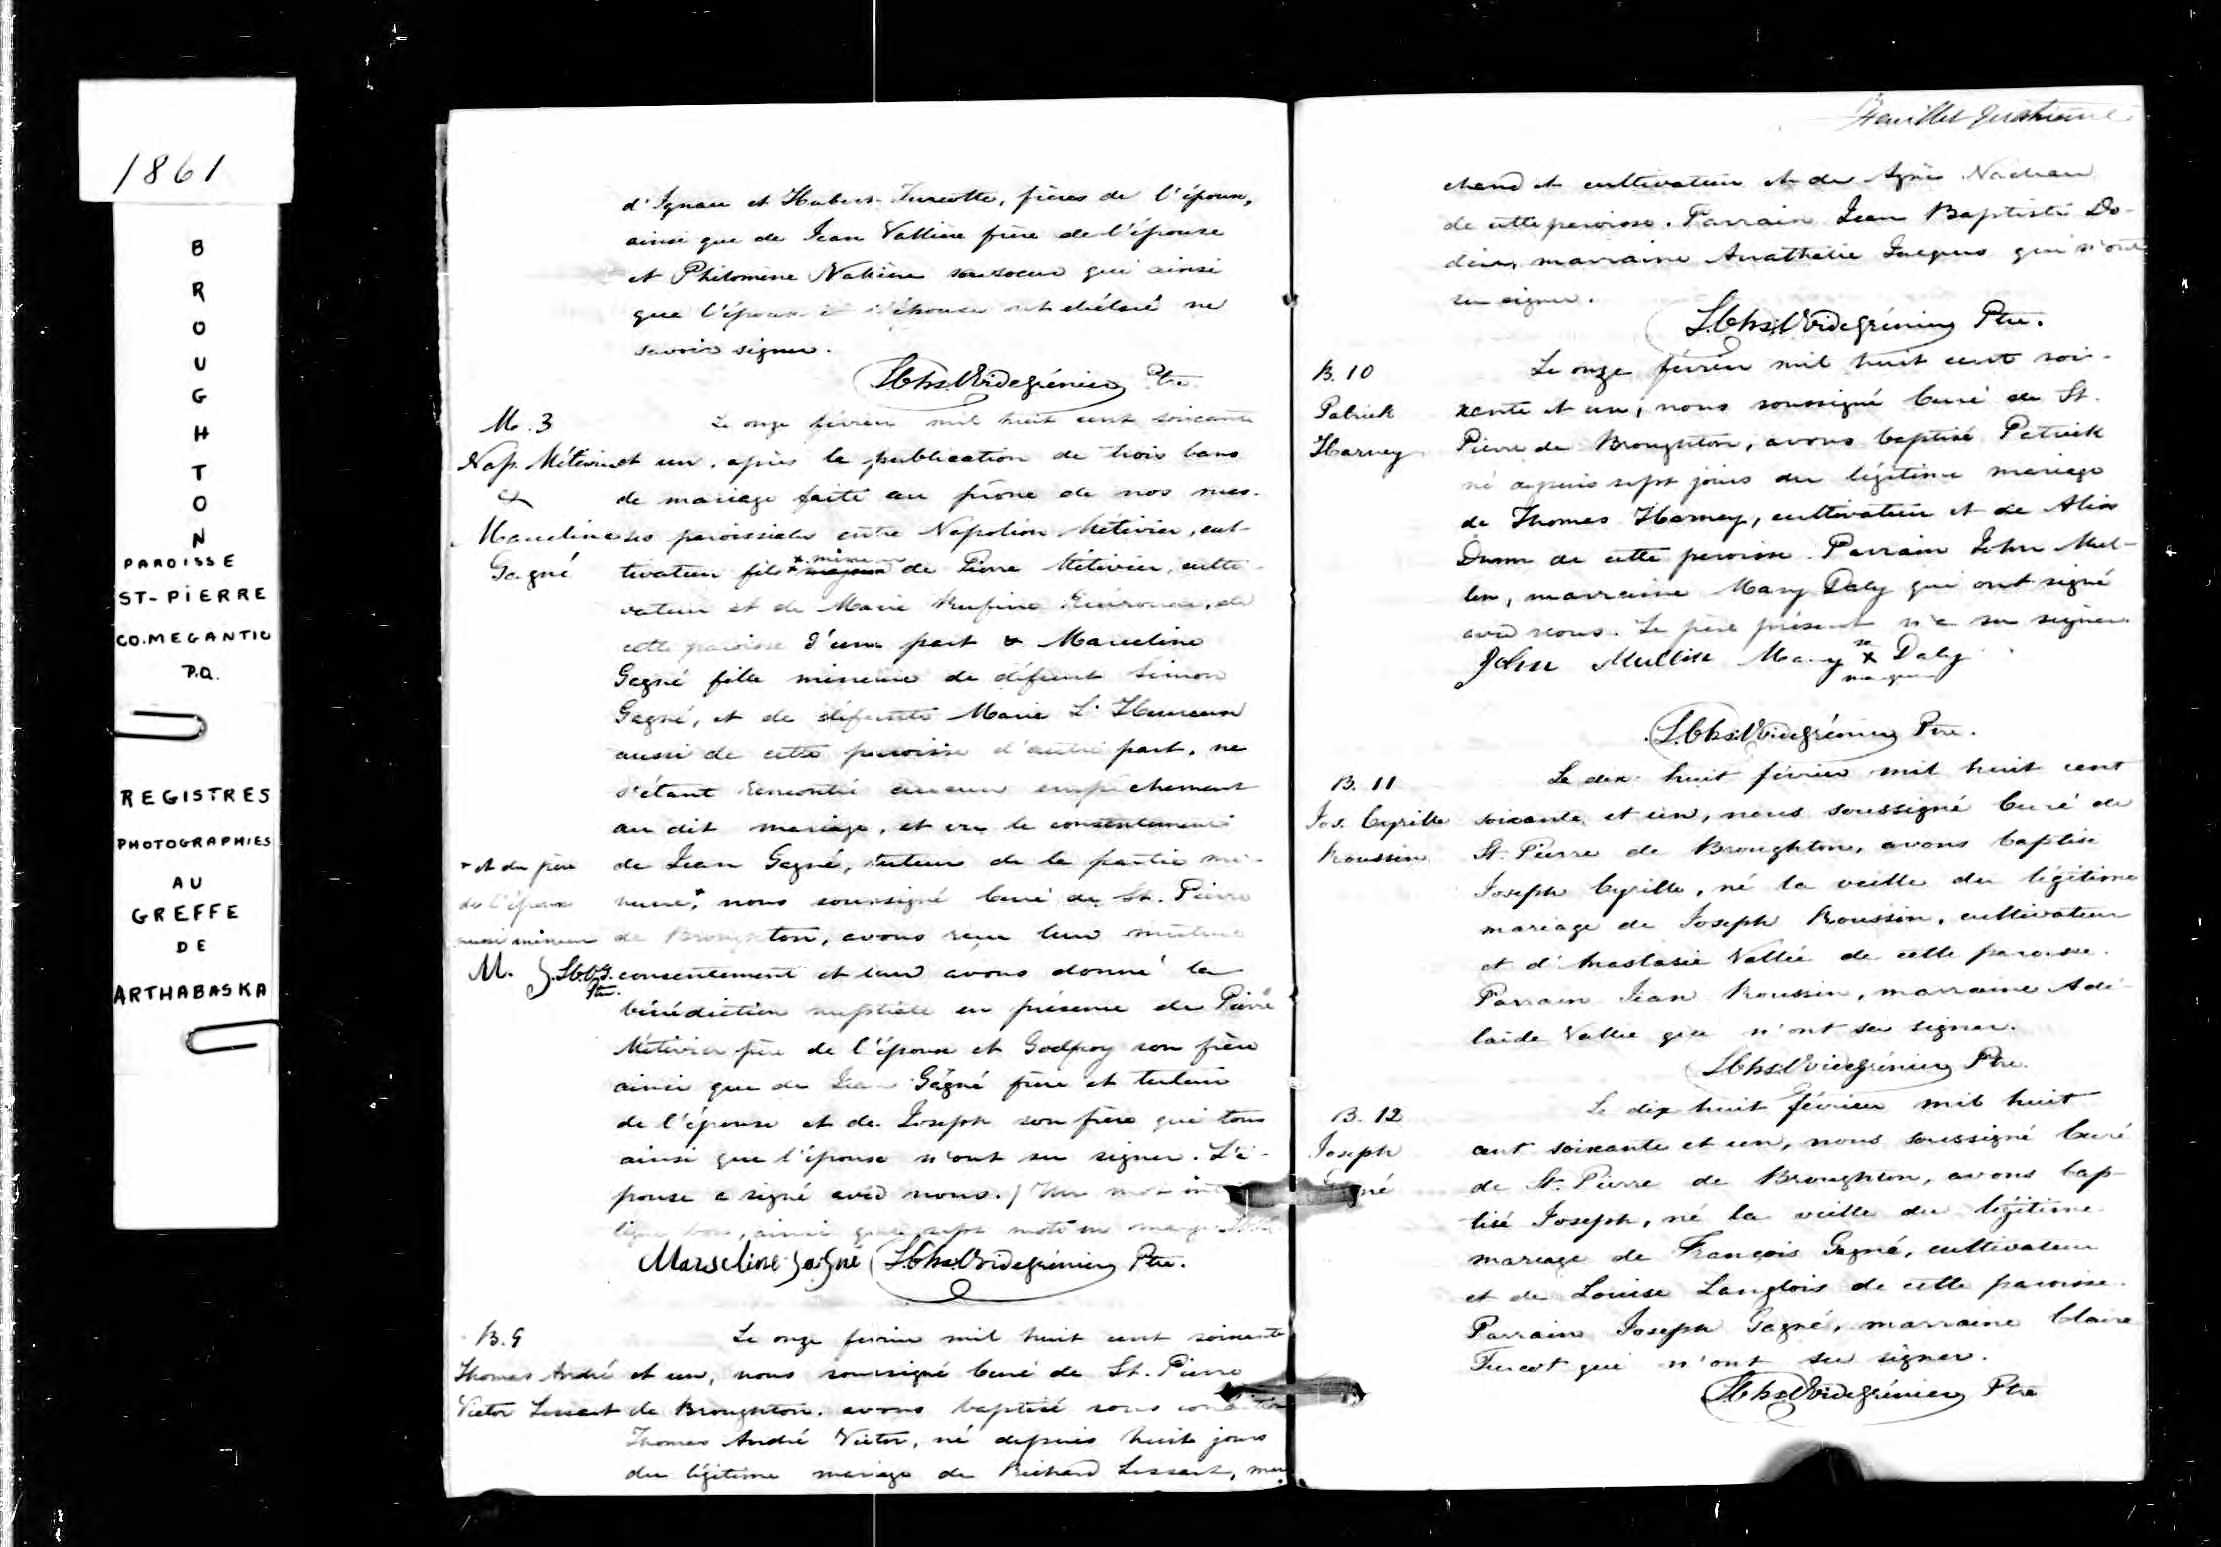 1861
B
R
O
U
G
H
T
O
N
PAROISSE
ST-PIERRE
CO.MEGANTIC
P.Q.
REGISTRES
PHOTOGRAPHIES
AU
GREFFE
DE
ARTHABASKA
d'Ignace et Hubert Turcotte, frères de l'époux,
ainsi que de Jean Vallière frère de l'épouse
et Philomène Vallière sa soeur qui ainsi
que l'époux et l'épouse ont déclaré ne
savoir signer.
Ptre
M. 3
Nap. Métivier
&
Marceline
Gagné
Le onze février mil huit cent soixante
et un, après la publication de trois bans
de mariage faite au prône de nos mes-
ses paroissiales entre Napoléon Métivier, cul-
tivateur fils * mineur de Pierre Métivier, culti-
vateur et de Marie Rufine de
cette paroisse d'une part & Marceline
Gagné fille mineure de défunt Simon
Gagné, et de défunte Marie L'Heureux
aussi de cette paroisse d'autre part, ne
s'étant rencontré aucun empêchement
au dit mariage, et vu le consentement
de Jean Gagné, tuteur de la partie mi-
neure,* nous soussigné Curé de St. Pierre
de Broughton, avons reçu leur mutuel
consentement et leur avons donné la
bénédiction nuptiale en présence de Pierre
Métivier père de l'époux et Godfroy son frère
ainsi que de Jean Gagné frère et tuteur
de l'épouse et de Joseph son frère qui tous
ainsi que l'époux n'ont su signer. L'é-
pouse a signé avec nous. Un mot
ligne bon, ainsi que sept mots en marge
* et du père
de l'époux
aussi mineur
M.
Ptre.
Marseline Gagné Ptre.
B. 9
Thomas André
Victor Lessart
Le onze février mil huit cent soixante
et un, nous soussigné Curé de St. Pierre
de Broughton, avons baptisé sous condition
Thomas André Victor, né depuis huit jours
du légitime mariage de Richard Lessart, mar
Feuillet quatrième
chand et cultivateur et de Agnès Nadeau
de cette paroisse. Parrain Jean Baptiste Do-
marraine Anathalie Jacques qui n'ont
su signer.
Ptre.
B. 10
Patrick
Harney
Le onze février mil huit cent soi-
xante et un, nous soussigné Curé de St.
Pierre de Broughton, avons baptisé Patrick
né depuis sept jours du légitime mariage
de Thomas Harney, cultivateur et de Alice
Dunn de cette paroisse. Parrain John Mul-
len, marraine Mary Daly qui ont signé
avec nous. Le père présent n'a su signer.
John Mullin Mary sa x marque Daly
Ptre.
B. 11
Jos. Cyrille
Roussin
Le dix huit février mil huit cent
soixante et un, nous soussigné Curé de
St. Pierre de Broughton, avons baptisé
Joseph Cyrille, né la veille du légitime
mariage de Joseph Roussin, cultivateur
et d'Anastasie Vallée de cette paroisse.
Parrain Jean Roussin, marraine Adé-
laide Vallée qui n'ont su signer.
Ptre.
B. 12
Joseph
Gagné
Le dix huit février mil huit
cent soixante et un, nous soussigné Curé
de St. Pierre de Broughton, avons bap-
tisé Joseph, né la veille du légitime
mariage de François Gagné, cultivateur
et de Louise Langlois de cette paroisse.
Parrain Joseph Gagné, marraine Claire
Turcot qui n'ont su signer.
Ptre